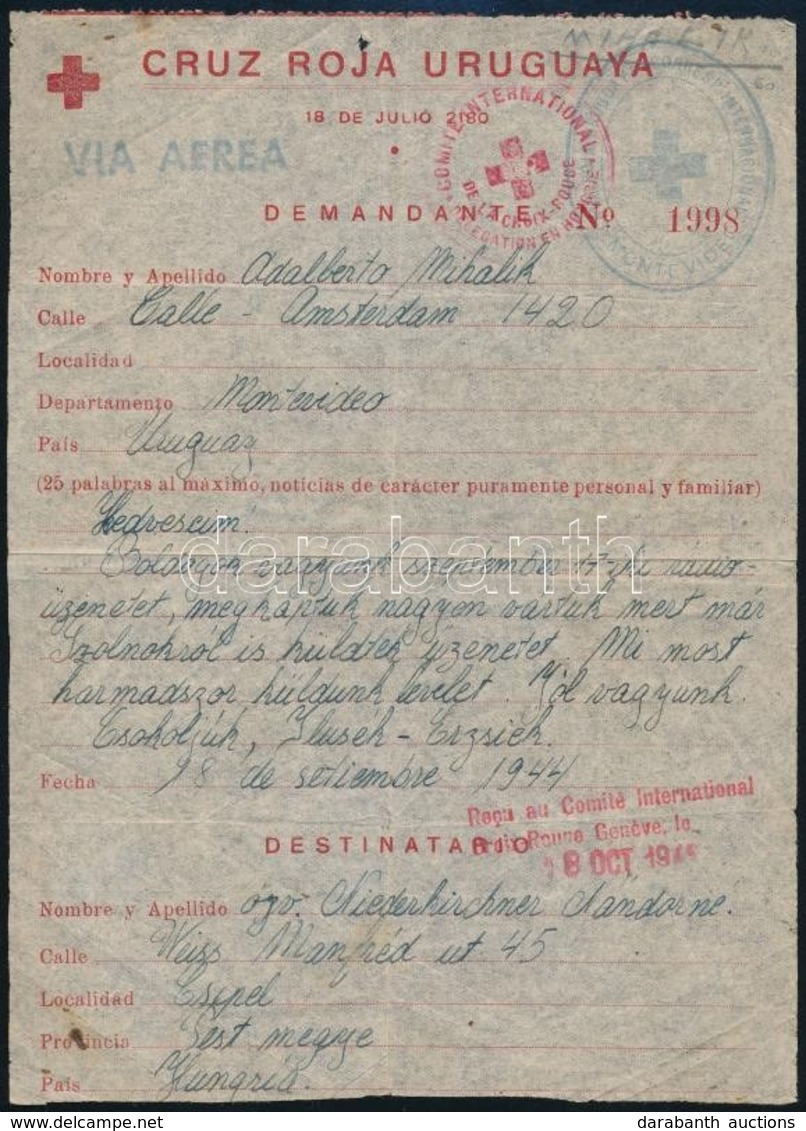 MIHALIK
CRUZ ROJA URUGUAYA
18 DE JULIO 2180
VIA AEREA
COMITÉ INTERNATIONAL
DE LA CROIX-ROUGE
DELEGATION EN
MONTEVIDEO
DEMANDANTE Nº 1998
Nombre y Apellido Adalberto Mihalik
Calle Calle - Amsterdam 1420
Localidad
Departamento Montevideo
País Uruguay
(25 palabras al máximo, noticias de carácter puramente personal y familiar)
Kedveseim!
Boldogok vagyunk szeptember 17-ki rádio-
üzenetet, megkaptuk nagyon vartuk mert már
Szolnokról is küldtek üzenetet. Mi most
harmadszor küldunk levelet. Jól vagyunk.
Csokoljúk, Ilusek - Erzsiek.
Fecha 18 de setiembre 1944
Reçu au Comité International
Croix Rouge Genève, le
18 OCT 194
DESTINATARIO
Nombre y Apellido özv. Niederkirchner Nandorne.
Calle Weiss Manfréd ut. 45
Localidad Csepel
Provincia Pest megye
País Hungria.
darabanth
darabanth auctions